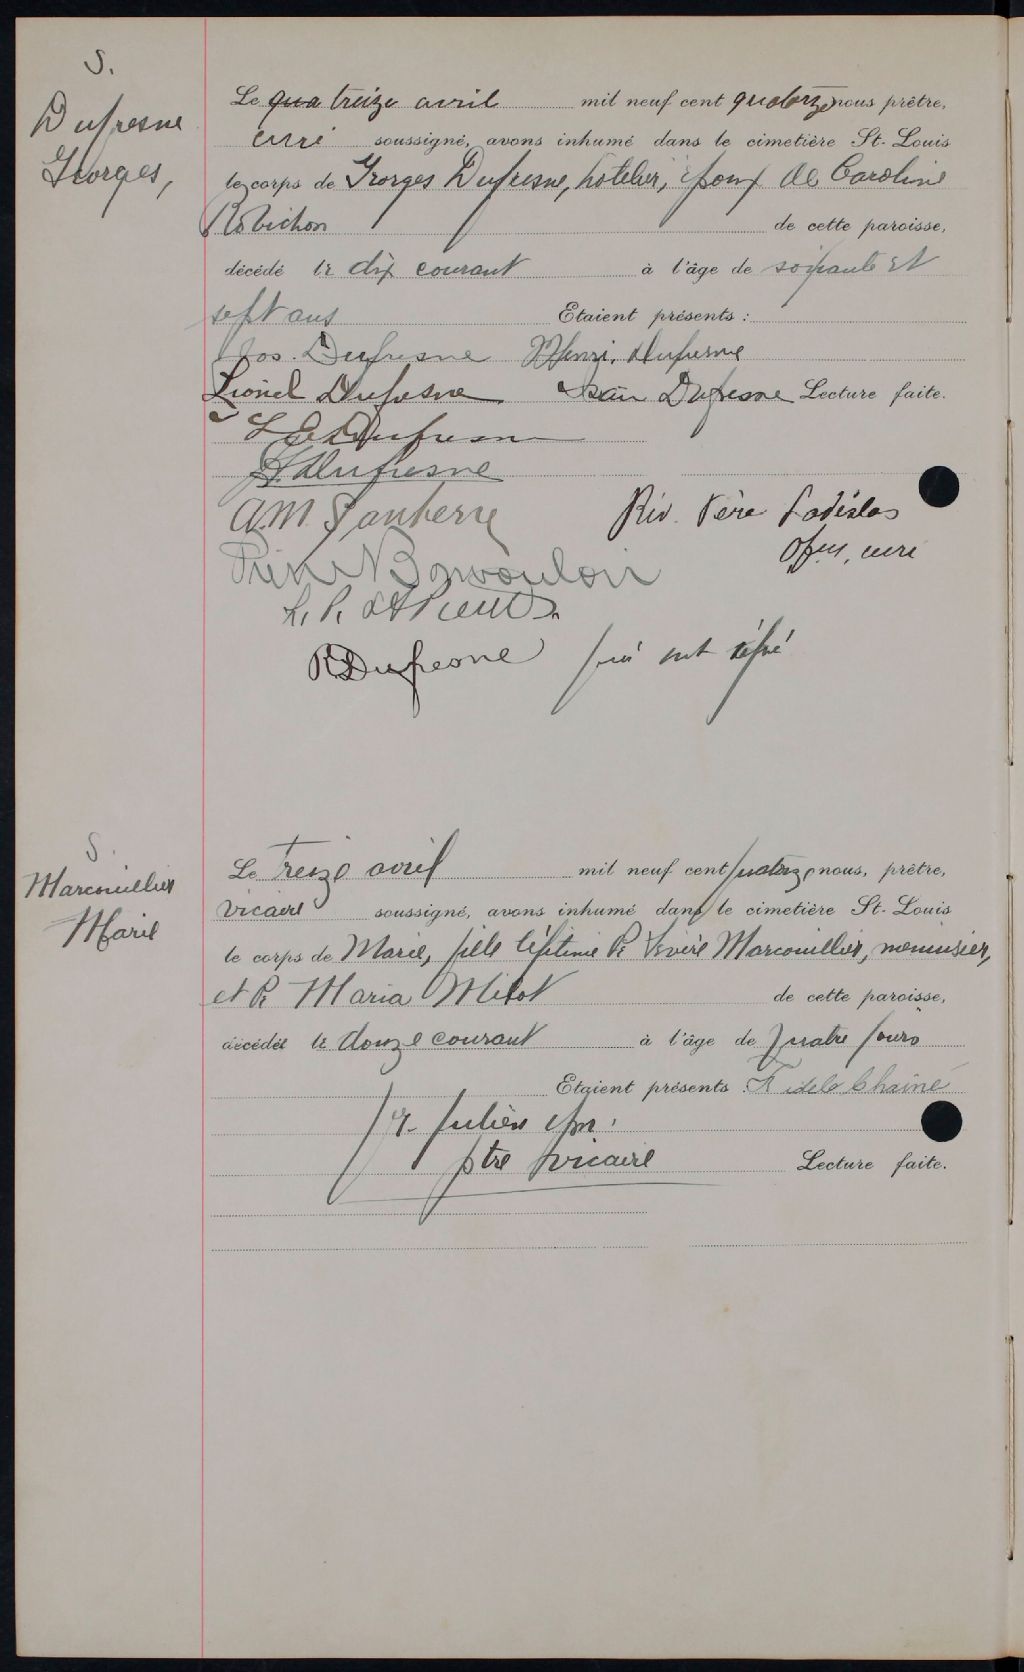 S.
Dufresne
Georges,
Le qua treize avril mil neuf cent quatorze nous prêtre,
curé soussigné, avons inhumé dans le cimetière St. Louis
le corps de Georges Dufresne, hotelier, époux de Caroline
Robichon de cette paroisse,
décédé le dix courant à l'âge de soixante et
sept ans Etaient présents :
Jos. Dufresne Henri Dufresne
Lionel Dufresne Dufresne Lecture faite.
Dufresne
Dufresne
A.M.
Rév. Père Ladislas
Pierre Bonvouloir
ofm, curé
L. P.
R Dufresne qui ont signé
S.
Marcouillier
Marie
Le Treize avril mil neuf cent quatorze nous, prêtre,
vicaire soussigné, avons inhumé dans le cimetière St. Louis
le corps de Marie, fille légitime de Marcouillier, menuisier,
et de Maria Milot de cette paroisse,
décédée le douze courant à l'âge de quatre jours
Etaient présents : Fidele Chainé
fr. Julien ofm.
ptre vicaire Lecture faite.